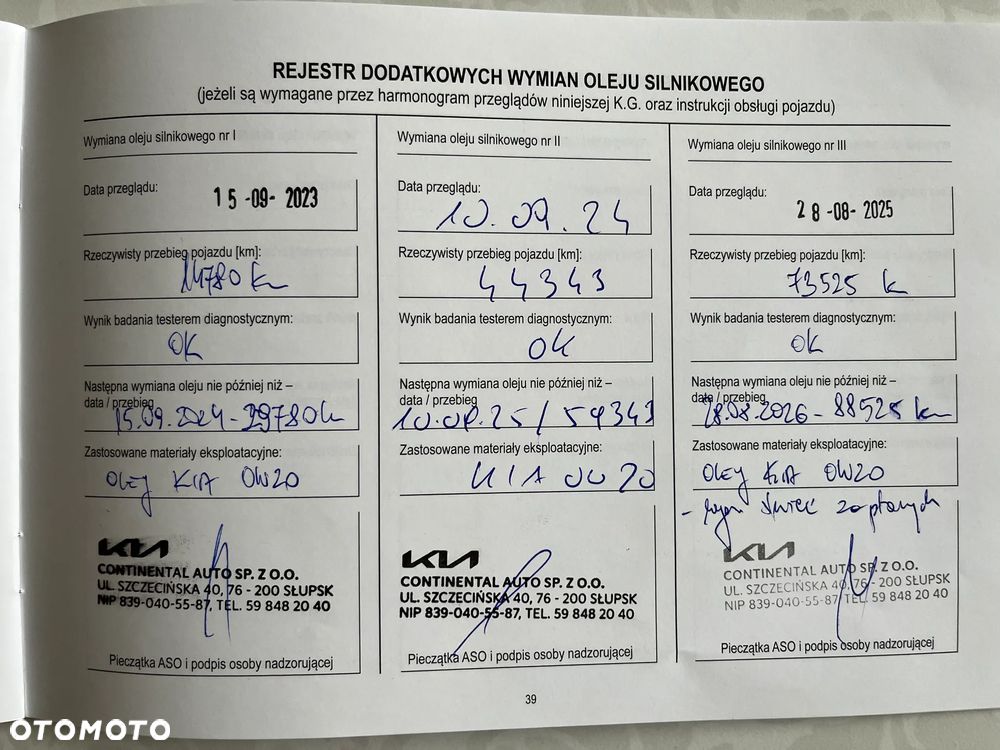 REJESTR DODATKOWYCH WYMIAN OLEJU SILNIKOWEGO
(jeżeli są wymagane przez harmonogram przeglądów niniejszej K.G. oraz instrukcji obsługi pojazdu)
Wymiana oleju silnikowego nr I
Data przeglądu:
15-09-2023
Rzeczywisty przebieg pojazdu [km]:
14780 km
Wynik badania testerem diagnostycznym:
OK
Następna wymiana oleju nie później niż –
data / przebieg
15.09.2024 - 29780 km
Zastosowane materiały eksploatacyjne:
OLEJ KIA 0W20
KIA
CONTINENTAL AUTO SP. Z O.O.
UL. SZCZECIŃSKA 40, 76 - 200 SŁUPSK
NIP 839-040-55-87, TEL. 59 848 20 40
Pieczątka ASO i podpis osoby nadzorującej
Wymiana oleju silnikowego nr II
Data przeglądu:
10.09.24
Rzeczywisty przebieg pojazdu [km]:
44343
Wynik badania testerem diagnostycznym:
OK
Następna wymiana oleju nie później niż –
data / przebieg
10.09.25 / 59343
Zastosowane materiały eksploatacyjne:
KIA 0W20
KIA
CONTINENTAL AUTO SP. Z O.O.
UL. SZCZECIŃSKA 40, 76 - 200 SŁUPSK
NIP 839-040-55-87, TEL. 59 848 20 40
Pieczątka ASO i podpis osoby nadzorującej
Wymiana oleju silnikowego nr III
Data przeglądu:
28-08-2025
Rzeczywisty przebieg pojazdu [km]:
73525 km
Wynik badania testerem diagnostycznym:
OK
Następna wymiana oleju nie później niż –
data / przebieg
28.08.2026 - 88525 km
Zastosowane materiały eksploatacyjne:
OLEJ KIA 0W20
- świec zapłonowych
KIA
CONTINENTAL AUTO SP. Z O.O.
UL. SZCZECIŃSKA 40, 76 - 200 SŁUPSK
NIP 839-040-55-87, TEL. 59 848 20 40
Pieczątka ASO i podpis osoby nadzorującej
39
OTOMOTO